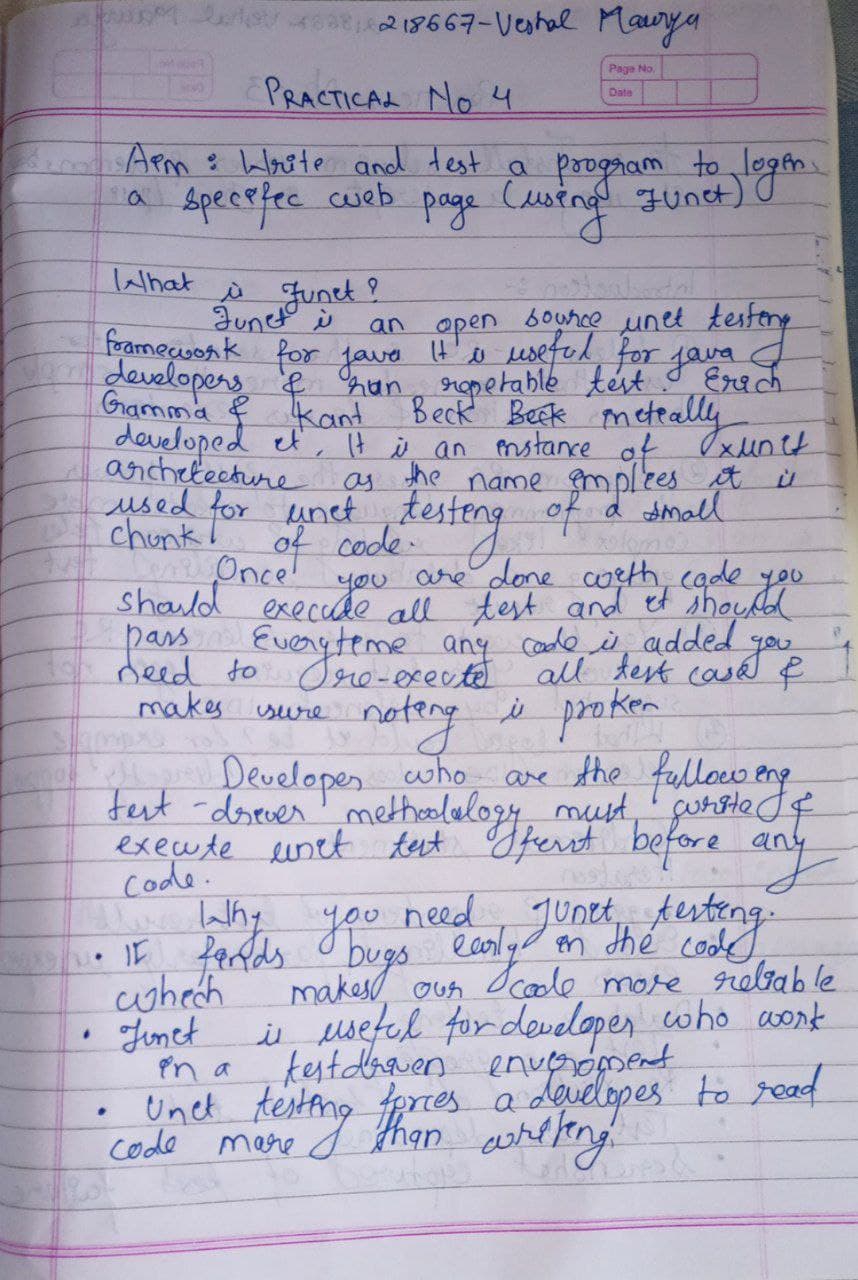 218667-Veshal Maurya
Page No.
Date
PRACTICAL No 4
Aem : Write and test a program to logen
a specefec web page (useng Junet)
What is Junet?
Junet is an open source unet testeng
framework for java It is useful for java
developers & run repetable test. Erech
Gramma & Kant Beck Beck meteally
developed et. It is an enstance of xunet
archetecture as the name emplees it is
used for unet testeng of a small
chunk of code.
Once you are done weth code you
should execute all test and et should
pass Everyteme any code is added you
need to re-execte all test case &
makes sure noteng is proken
Developer who are the folloeng
test-drever methodalogy must write &
execute unet test ferst before any
code.
Why you need Junet testeng.
• It fends bugs early en the code
whech makes our code more reliable
• Junet is useful for developer who work
en a testdraven enveroment
• Unet testeng forces a developes to read
code more than writeng